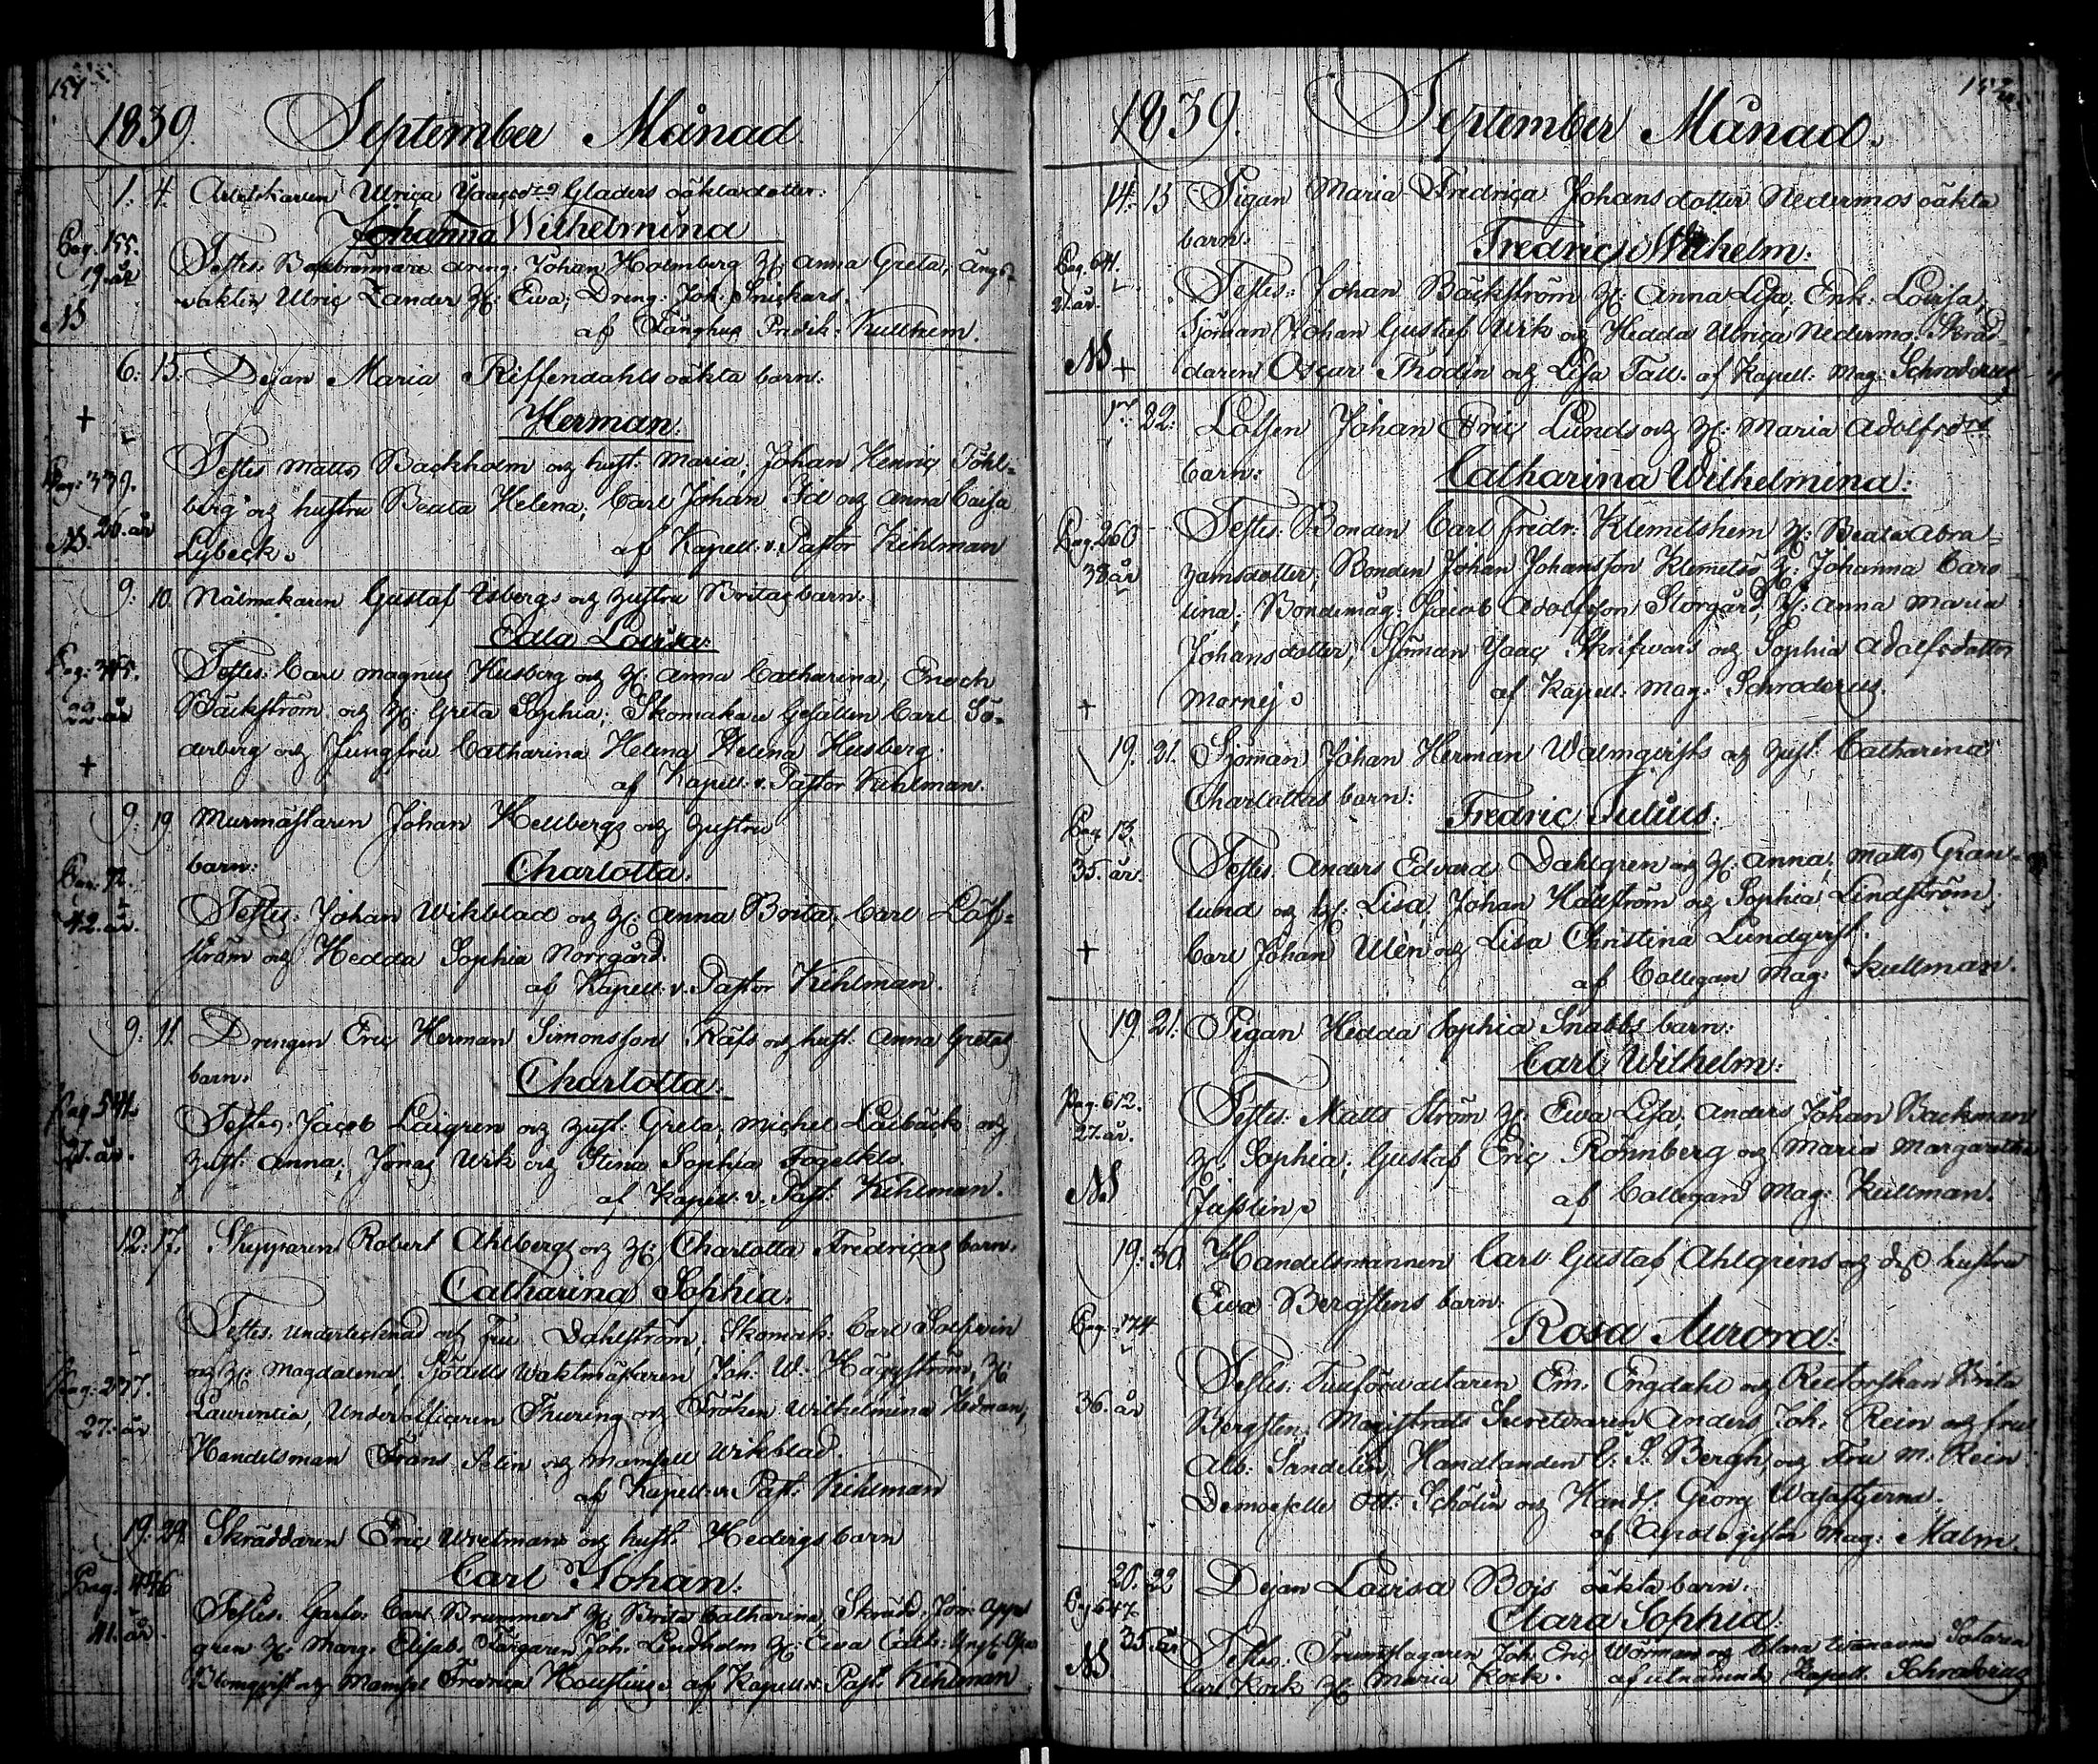 1839. September Månad
1: 4. Ulrica Gladers oäkta dotter:
Johanna Wilhelmina
Pag. 155.
19. år
Testes: dreng: Johan Holmberg H: Anna Greta,
Ulric Zander H: Ewa; Dreng: Joh. Snickars.
af Predik: Kullhem.
6: 15: Dejan Maria Riffendahls oäkta barn:
Herman:
Testes Matts Backholm och hust: Maria; Johan Henric
berg och hustru Beata Helena; Carl Johan och Anna Caisa
Pag: 339.
26. år
Lybeck. af Kapell. v. Pastor Kihlman
9: 10. Nålmakaren Gustaf Isbergs och hustru Britas barn:
Edla Lovisa:
Testes: Carl Magnus Husberg och H: Anna Catharina; Enoch
22. år
Bäckström och H: Greta Sophia; Skomakare Gesällen Carl Sö-
derberg och Jungfru Catharina Helena Helena Husberg.
+
af Kapell. v. Pastor Kihlman.
9: 19. Murmästaren Johan Hellbergs och hustru
barn:
Charlotta:
Testes: Johan Wikblad och H: Anna Brita; Carl Löf-
42. år.
ström och Hedda Sophia Norrgård.
af Kapell. v. Pastor Kihlman.
9: 11. Drengen Eric Herman Simonsson Räfs och hust: Anna Gretas
barn.
Charlotta:
Pag. 541.
Testes: Jacob Laigren och hust: Greta; Michel Laibäck och
27. år.
hust: Anna; Jonas Wik och Stina Sophia Fogelklo.
af Kapell. v. Past: Kihlman.
12: 17. Skepparen Robert Ahlbergs och H: Charlotta Fredricas barn.
Catharina Sophia.
Testes: undertecknad och Fru Dahlström; Skomak: Carl
Pag: 237.
och H: Magdalena; Waktmästaren Joh: W: Häggström, H:
27. år
Laurentia; Underofficeren Thuring och Fröken Wilhelmina Hedman;
Handelsman Frans och Mamsell Wikblad.
af Kapell. v. Past. Kihlman
19: 29. Skräddaren Eric och hust. Hedvigs barn
Carl Johan:
Testes. Carl Brummert H: Brita Catharina, Skrädd:
41. år
gren H: Marg: Elisab: Färgaren Joh. Lindholm H: Ewa
Blomqvist och Mamsel Fredrica af Kapell. v. Past. Kihlman
1839. September Månad.
14: 15 Pigan Maria Fredrica Johansdotter Nedermos oäkta
barn:
Fredric Wilhelm:
Pag. 641.
21. år.
Testes: Johan Bäckström H: Anna Lisa, Enk: Lovisa;
Sjöman Johan Gustaf Wik och Hedda Ulrica Nedermo; Skräd-
daren Oscar Thodin och Lisa Tall. af Kapell: Mag: Schroderus
17. 22: Lotsen Johan Eric Lunds och H: Maria Adolfsdrs
barn:
Catharina Wilhelmina:
Pag. 260
38 år
Testes: Bonden Carl Fredr: Klemetshem H: Beata Abra-
hamsdotter; Bonden Johan Johansson Klemetsö H: Johanna Caro-
lina; Bondemåg: Jacob Adolfsson Storgård H: Anna Maria
Johansdotter; Sjöman Isaac Skrifvars och Sophia Adolfsdotter
+
af Kapell. Mag: Schroderus.
19. 21. Sjöman Johan Herman Walmqvists och hust. Catharina
Charlottas barn:
Fredric Julius:
Pag. 13.
35. år.
Testes. Anders Edvard Dahlgren och H: Anna; Matts Gran-
lund och H: Lisa; Johan Hällström och Sophia Lindström;
+
Carl Johan Ulèn och Lisa Christina Lundqvist.
af Collegan Mag: Kullman.
19. 21. Pigan Hedda Sophia Snabbs barn:
Carl Wilhelm:
Pag. 612.
27. år.
Testes: Matts Ström H: Ewa Lisa, Anders Johan Backman
H: Sophia; Gustaf Eric Rönnberg och Maria Margaretha
af Collegan Mag: Kullman.
19: 30. Handelsmannen Carl Gustaf Ahlgrens och dess hustru
Ewa Bergstens barn:
Rosa Aurora:
Pag. 174
36. år
Testes: Em. Engdahl och Rectorskan Brita
Bergsten; Magistrats Secreteraren Anders Joh: Rein och fru
Alb: Sandelin; Handlanden C: S: Bergh och Fru M: Rein
Demoiselle Ott: Schölin och Hand: Georg Wasastjerna.
af Apologisten Mag: Malm.
20. 22 Dejan Lovisa Bojs oäkta barn:
Clara Sophia
Pag 647.
35. år
Testes: Trumslagaren Joh: Eric Wörman och Clara
Carl Kock H: Maria Kock. af Kapell. Schroderus